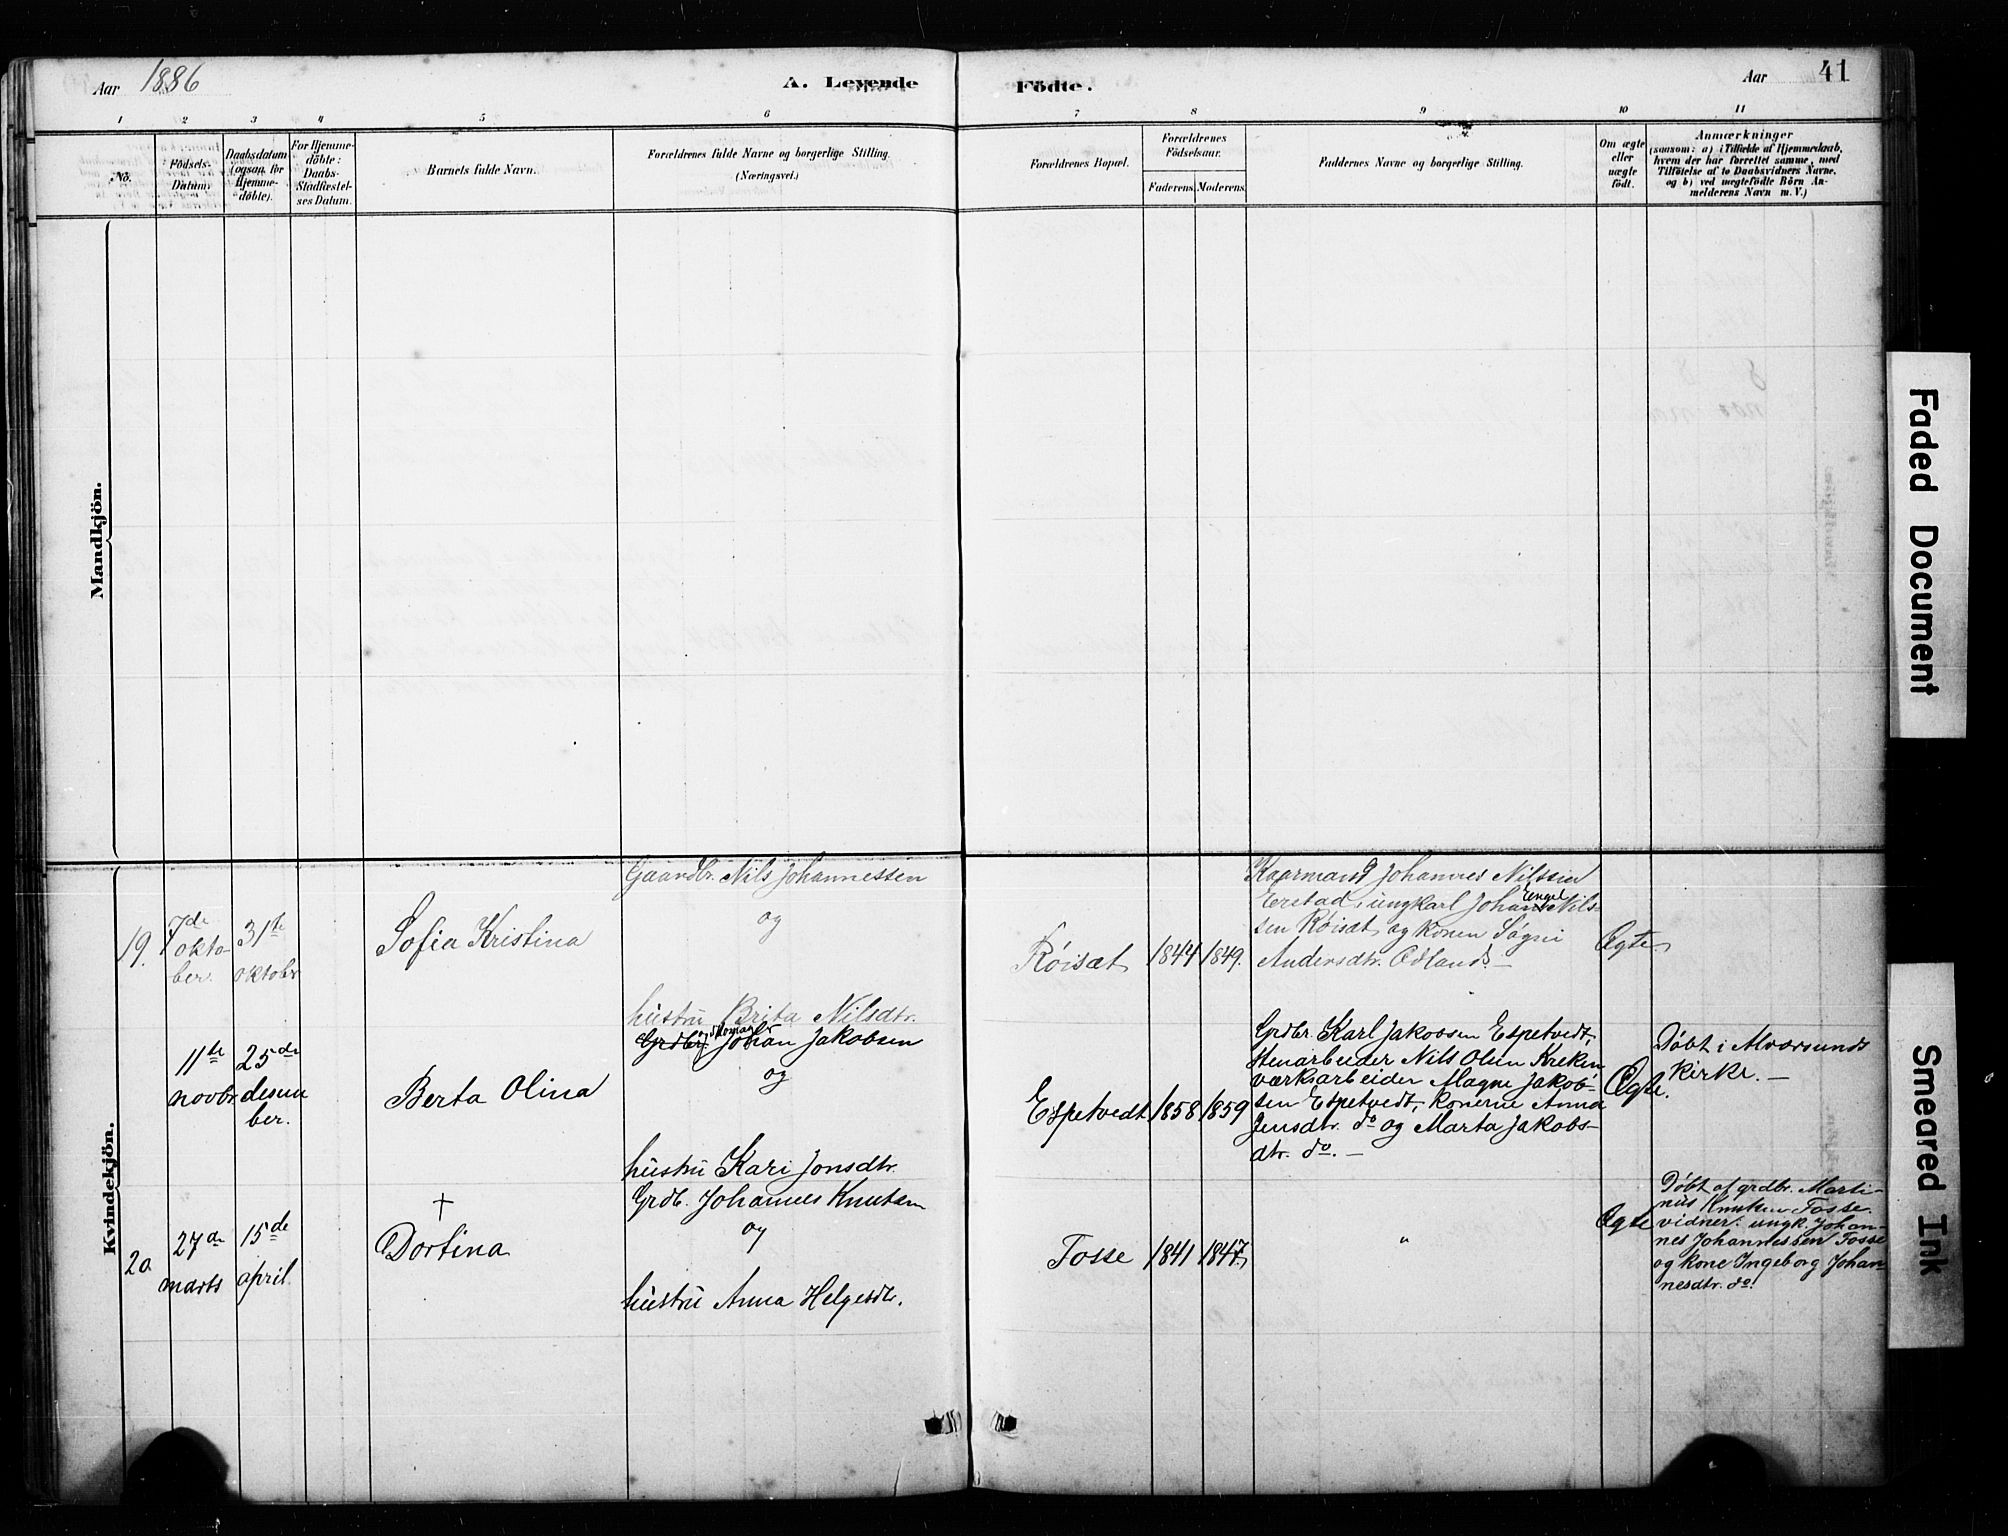 Aar 1886
A. Levende
Födte.
Aar
41
1 2 3 4 5 6 7 8 9 10 11
No.
Födsels-
Datum.
Daabsdatum
(ogsaa for
Hjemme-
döbte).
For Hjemme-
döbte:
Daabs-
Stadfæstel-
ses Datum.
Barnets fulde Navn.
Forældrenes fulde Navne og borgerlige Stilling.
(Næringsvei.)
Forældrenes Bopæl.
Forældrenes
Födselsaar.
Faderens. Moderens.
Faddernes Navne og borgerlige Stilling.
Om ægte
eller
uægte
födt.
Anmærkninger
(saasom: a) i Tilfælde af Hjemmedaab,
hvem der har forrettet samme, med
Tilföielse af to Daabsvidners Navne,
og b) ved uægtefödte Börn An-
melderens Navn m. V.)
Mandkjön.
Kvindekjön.
19.
7de
okto-
ber.
31te
oktobr
Sofia Kristina
Gaardbr. Nils Johannessen
og
hustru Brita Nilsdtr.
Röisæt
1844 1849.
Kaarmand Johannes Nilssen
Eerstad, ungkarl Johan Engel Nils-
sen Röisæt og konen Sögni
Andersdtr. Ædland. —
Ægte
11te
novbr.
25de
desem
ber.
Berta Olina
Grdbr. og skomager Johan Jakobsen
og
hustru Kari Jonsdtr.
Espetvedt
1858 1859
Grdbr. Karl Jakobsen Espetvedt,
stenarbeider Nils Olsen Kreken
værksarbeider Magne Jakob-
sen Espetvedt, konerne Anna
Jensdtr. do og Marta Jakobs-
dtr. do. —
Ægte.
Döbt i Alversunds
kirke. —
20
27de
marts
15de
april.
†
Dortina
Grdb. Johannes Knutsen
og
hustru Anna Helgesdtr.
Tosse
1841 1847.
"
Ægte
Döbt af grdbr. Marti-
nus Knutsen Tosse.
vidner: ungk. Johan-
nes Johannessen Tosse
og kone Ingeborg Johan-
nesdtr. do.
Faded Document
Smeared Ink